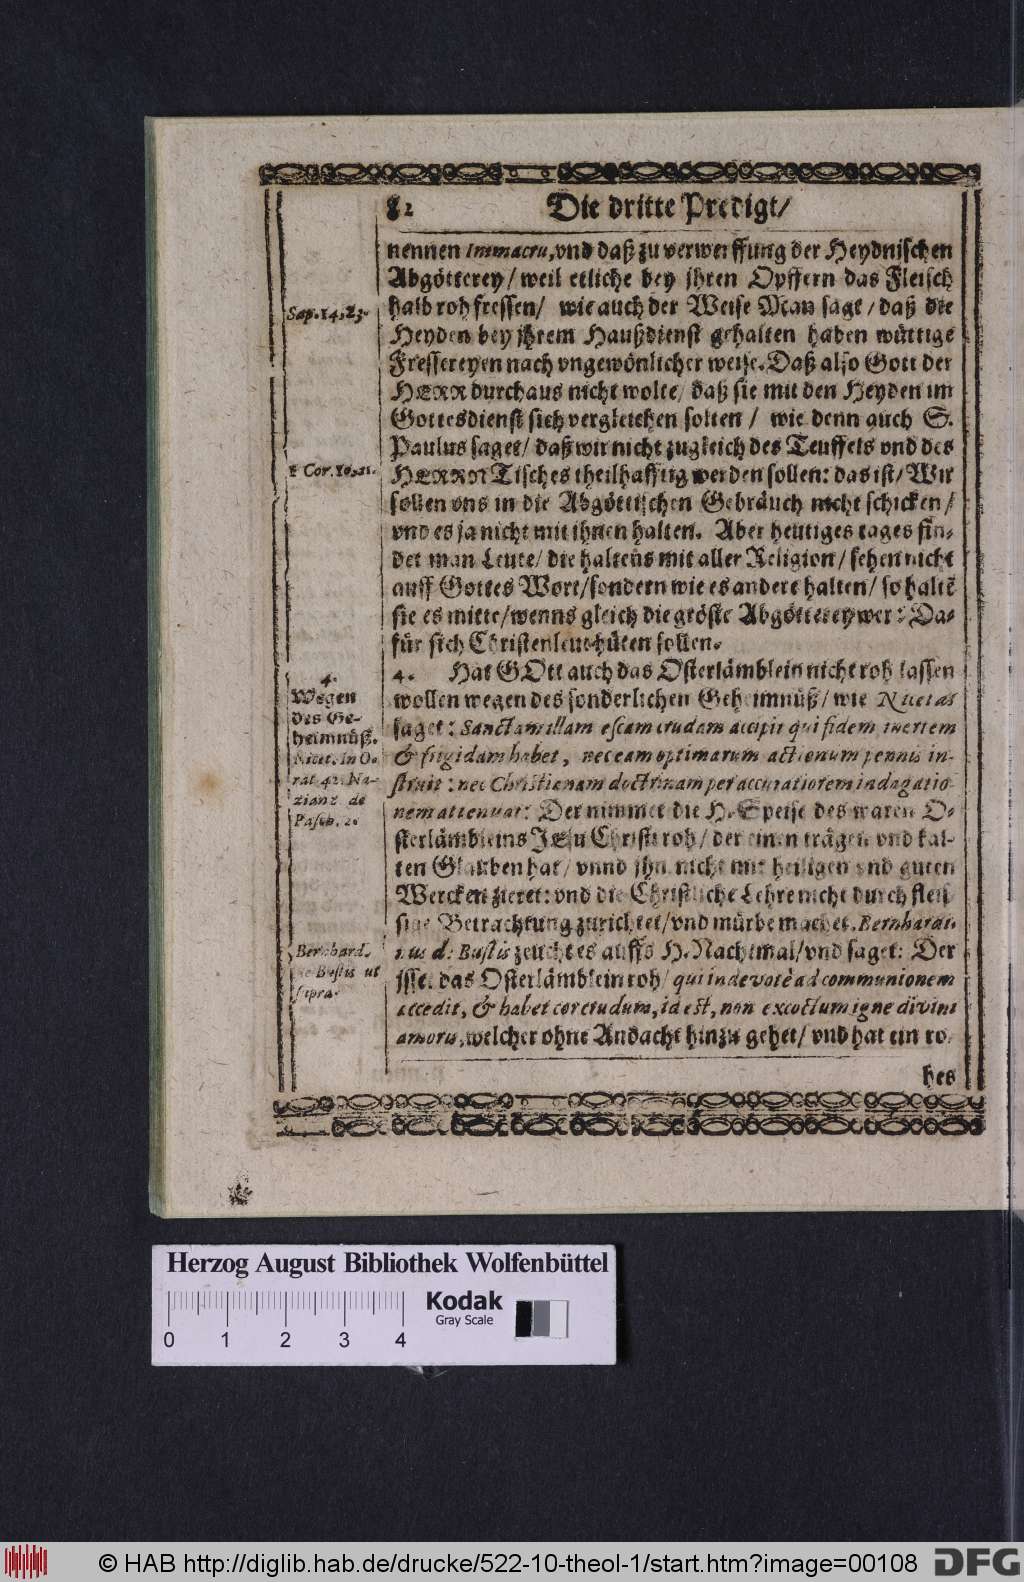 82 Die dritte Predigt/
nennen Immacru, vnd daß zu verwerffung der Heydnischen
Abgötterey/ weil etliche bey jhren Opffern das Fleisch
halb roh fressen/ wie auch der Weise Man sagt/ daß die
Sap. 14, 23.
Heyden bey jhrem Haußdienst gehalten haben wüttige
Fressereyen nach vngewönlicher weise. Daß also Gott der
HERR durchaus nicht wolte/ daß sie mit den Heyden im
Gottesdienst sich vergleichen solten/ wie denn auch S.
Paulus saget/ daß wir nicht zugleich des Teuffels vnd des
HERRN Tisches theilhafftig werden sollen: das ist/ Wir
1 Cor. 10, 21.
sollen vns in die Abgöttischen Gebräuch nicht schicken/
vnd es ja nicht mit ihnen halten. Aber heutiges tages fin-
det man Leute/ die haltens mit aller Religion/ sehen nicht
auff Gottes Wort/ sondern wie es andere halten/ so haltē
sie es mitte/ wenns gleich die gröste Abgötterey wer: Da-
für sich Christenleut hüten sollen.
4. Hat GOtt auch das Osterlämblein nicht roh lassen
4.
Wegen
des Ge-
heimnüß.
Nicet. in O-
rat. 42. Na-
zianz. de
Pasch. 2.
wollen wegen des sonderlichen Geheimnüß/ wie Nicetas
saget: Sanctam illam escam crudam accipit qui fidem inertem
& frigidam habet, nec eam optimarum actionum pennis in-
struit: nec Christianam doctrinam per accuratiorem indagatio-
nem attenuat: Der nimmet die H. Speise des waren O-
sterlämbleins JEsu Christi roh/ der einen trägen vnd kal-
ten Glauben hat/ vnnd jhn nicht mit heiligen vnd guten
Wercken zieret: vnd die Christliche Lehre nicht durch fleis-
sige Betrachtung zurichtet/ vnd mürbe machet. Bernhardi-
nus d: Bustis zeucht es auffs H. Nachtmal/ vnd saget: Der
Bernhard.
de Bustis ut
supra.
isset das Osterlämblein roh/ qui indevotè ad communionem
accedit, & habet cor crudum, id est, non excoctum igne divini
amoris, welcher ohne Andacht hinzu gehet/ vnd hat ein ro-
hes
Herzog August Bibliothek Wolfenbüttel
Kodak
Gray Scale
0 1 2 3 4
© HAB http://diglib.hab.de/drucke/522-10-theol-1/start.htm?image=00108
DFG